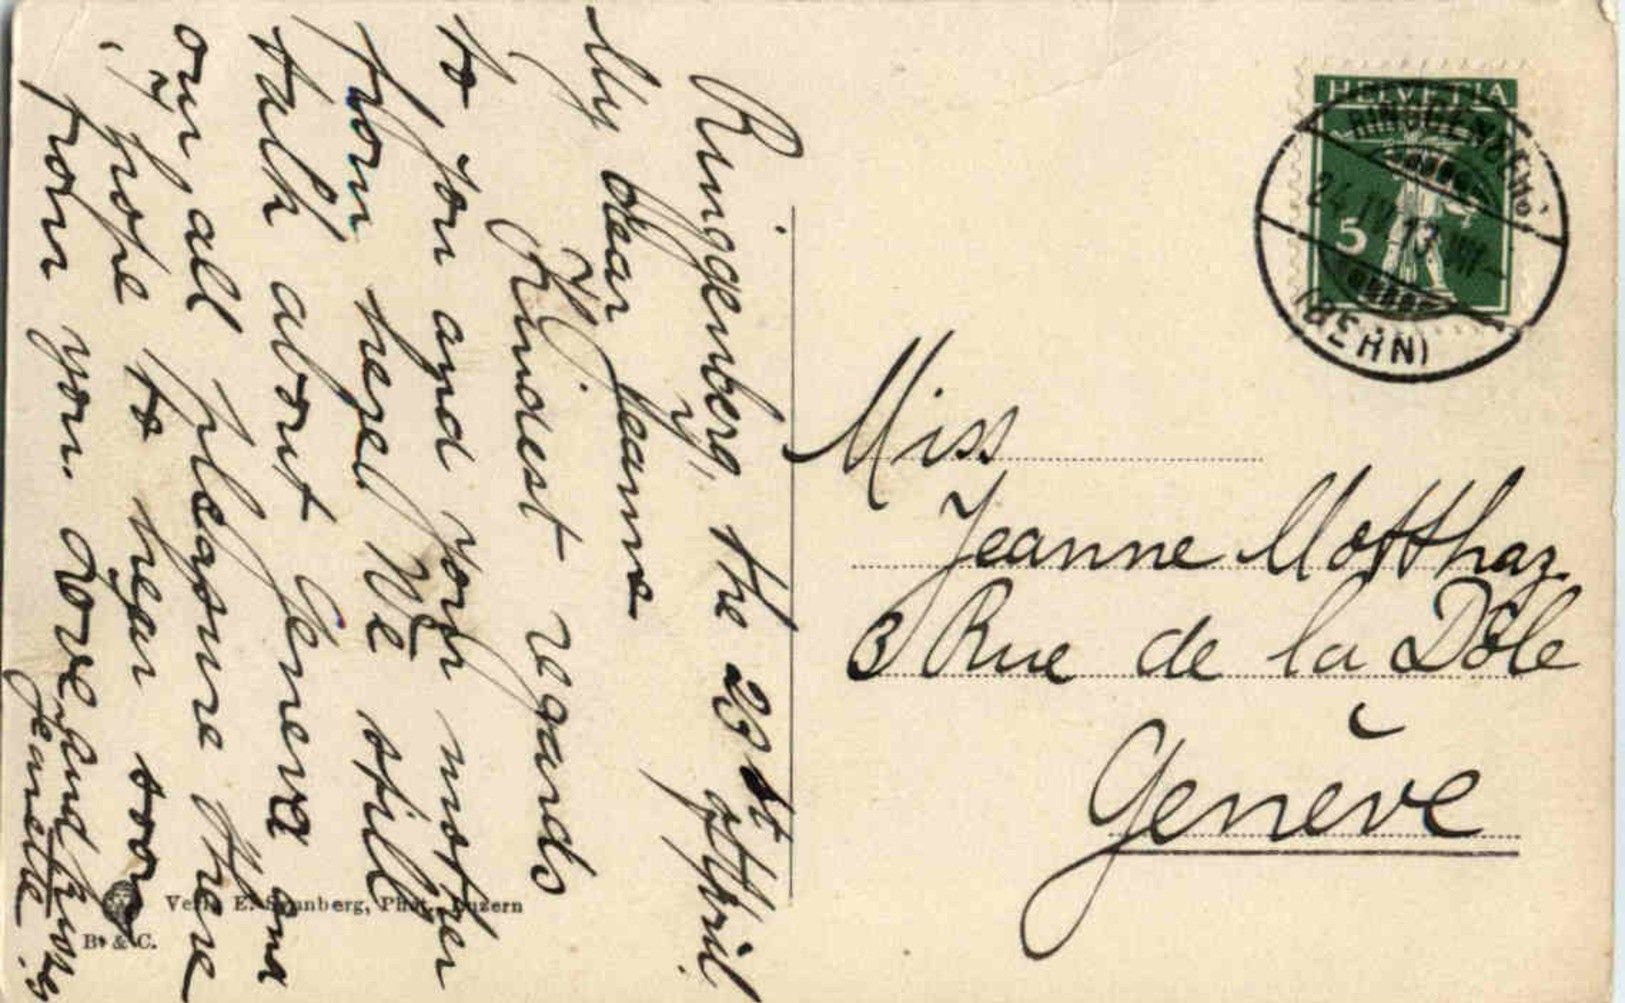 Ringgenberg, the 23st April
My dear Jeanne
Kindest regards
to you and your mother
from hazel We still
talk about Geneva and
our all pleasure there
i hope to hear soon
from you. Love and kisses
Janette
Miss
Jeanne Motthaz
3 Rue de la Dôle
Genève
HELVETIA
5
RINGGENBERG
24.IV.13.VII
(BERN)
Verlag E. Synnberg, Phot., Luzern
B. & C.